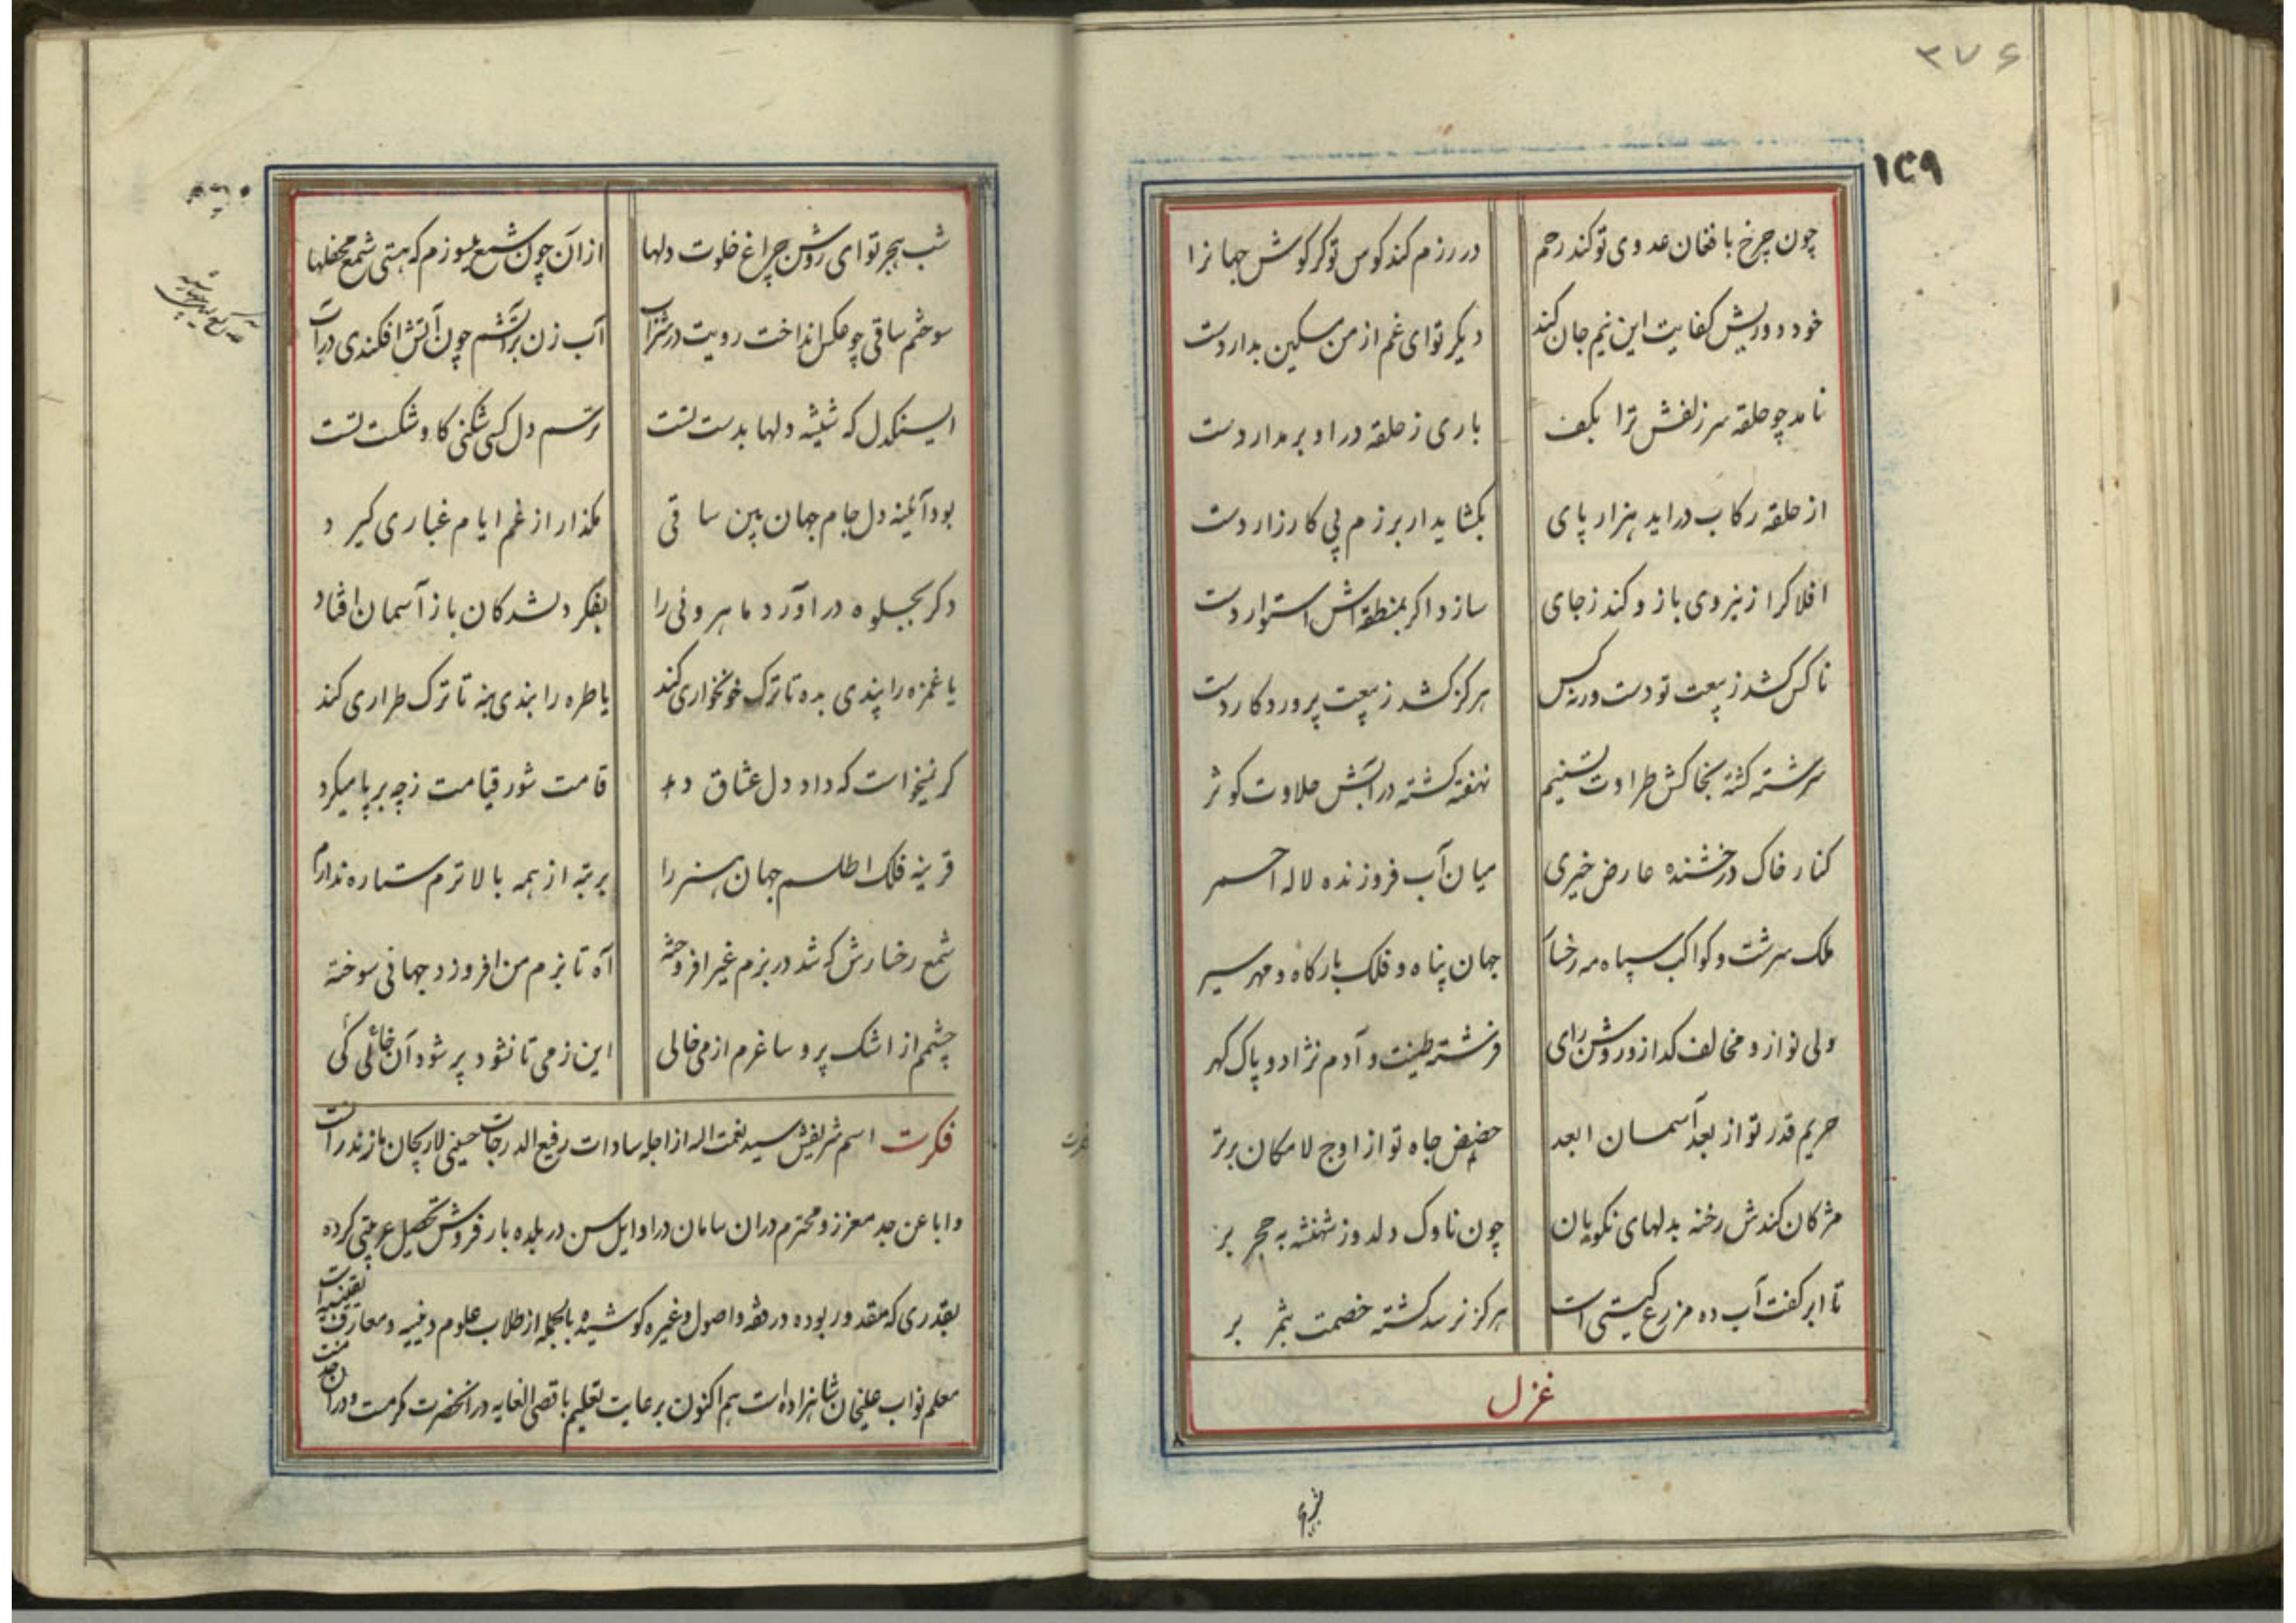 ۳۷۶
۱۴۹
چون چرخ با فغان عدوی تو کند رحم در رزم کند کوس تو کر کوش جهانرا
خود دوریش کفایت این نیم جان کند دیکر تو ای غم از من مسکین بدار دست
نامد چو حلقه سر زلفش ترا بکف باری ز حلقه در او بر مدار دست
از حلقه رکاب دراید هزار پای بکشاید ار برزم پی کارزار دست
افلاکرا ز نیروی بازو کند ز جای سازد اکر بمنطقه اش استوار دست
ناکس کشد ز بیعت تو دست ورنه کس هرکز کشد ز بیعت پروردکار دست
سرشته کشته بخاکش طراوت تسنیم نهفته کشته در آبش حلاوت کوثر
کنار خاک درخشنده عارض خیری میان آب فروزنده لاله احمر
ملک سرشت و کواکب سپاه مه رخسار جهان پناه و فلک بارکاه و مهر سریر
ولی نواز و مخالف کداز و روشن رای فرشته طینت و آدم نژاد و پاک کهر
حریم قدر تو از بعد آسمان ابعد حضیض جاه تو از اوج لامکان برتر
مژکان کندش رخنه بدلهای نکویان چون ناوک دلدوز شهنشه به حجر بر
تا ابر کفت آب ده مزرع کیتی است هرکز نرسد کشته خصمت بثمر بر
غزل
شب هجر تو ای روشن چراغ خلوت دلها از آن چون شمع میسوزم که هستی شمع محفلها
سوختم ساقی چو عکس انداخت رویت در شراب آب زن بر آتشم چون آتش افکندی در آب
ای سنکدل که شیشه دلها بدست تست ترسم دل کسی شکنی کاو شکست تست
بود آئینه دل جام جهان بین ساقی مکذار از غم ایام غباری کیرد
دکر بجلوه در اورد ماهروئی را بفکر دلشدکان باز آسمان افتاد
یا غمزه را پندی بده تا ترک خونخواری کند یا طره را بندی بنه تا ترک طراری کند
کر نمیخواست که داد دل عشاق دهد قامت شور قیامت ز چه بر پا میکرد
قرینه فلک اطلسم جهان هنر را برتبه از همه بالاترم ستاره ندارم
شمع رخسارش که شد در بزم غیر افروخته آه تا بزم من افروزد جهانی سوخته
چشمم از اشک پر و ساغرم از می خالی این ز می تا نشود پر شود آن خالی کی
فکرت اسم شریفش سید نعمت اله از اجله سادات رفیع الدرجات حسینی لاریجان مازندران است
و ابا عن جد معزز و محترم در ان سامان در اوایل سن در بلده بارفروش تحصیل عربیتی کرده
بقدری که مقدور بوده در فقه و اصول و غیره کوشیده بالجمله از طلاب علوم دینیه و معارف یقینیه است
معلم نواب علیخان شاهزاده است هم اکنون برعایت تعلیم باقصی الغایه در انحضرت مکرمست و در آن خدمت